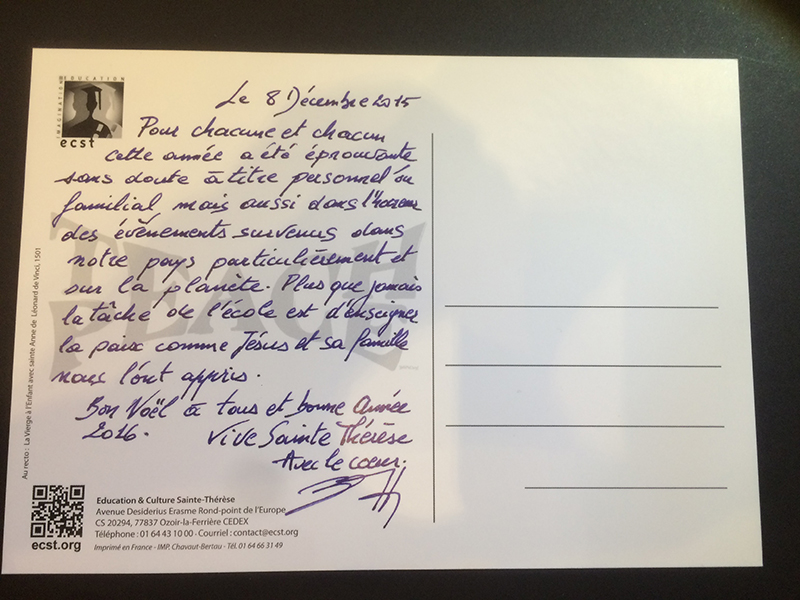 EDUCATION
IMAGINATION
ecst
Le 8 Décembre 2015
Pour chacune et chacun
cette année a été éprouvante
sans doute à titre personnel ou
familial mais aussi dans l'horreur
des évènements survenus dans
notre pays particulièrement et
sur la planète. Plus que jamais
la tâche de l'école est d'enseigner
la paix comme Jésus et sa famille
nous l'ont appris.
Bon Noël à tous et bonne Année
2016. Vive Sainte Thérèse
Avec le cœur.
TEACH
PEACE
Au recto : La Vierge à l'Enfant avec sainte Anne de Léonard de Vinci, 1501
ecst.org
Education & Culture Sainte-Thérèse
Avenue Desiderius Erasme Rond-point de l'Europe
CS 20294, 77837 Ozoir-la-Ferrière CEDEX
Téléphone : 01 64 43 10 00 - Courriel : contact@ecst.org
Imprimé en France - IMP. Chavaut-Bertau - Tél. 01 64 66 31 49